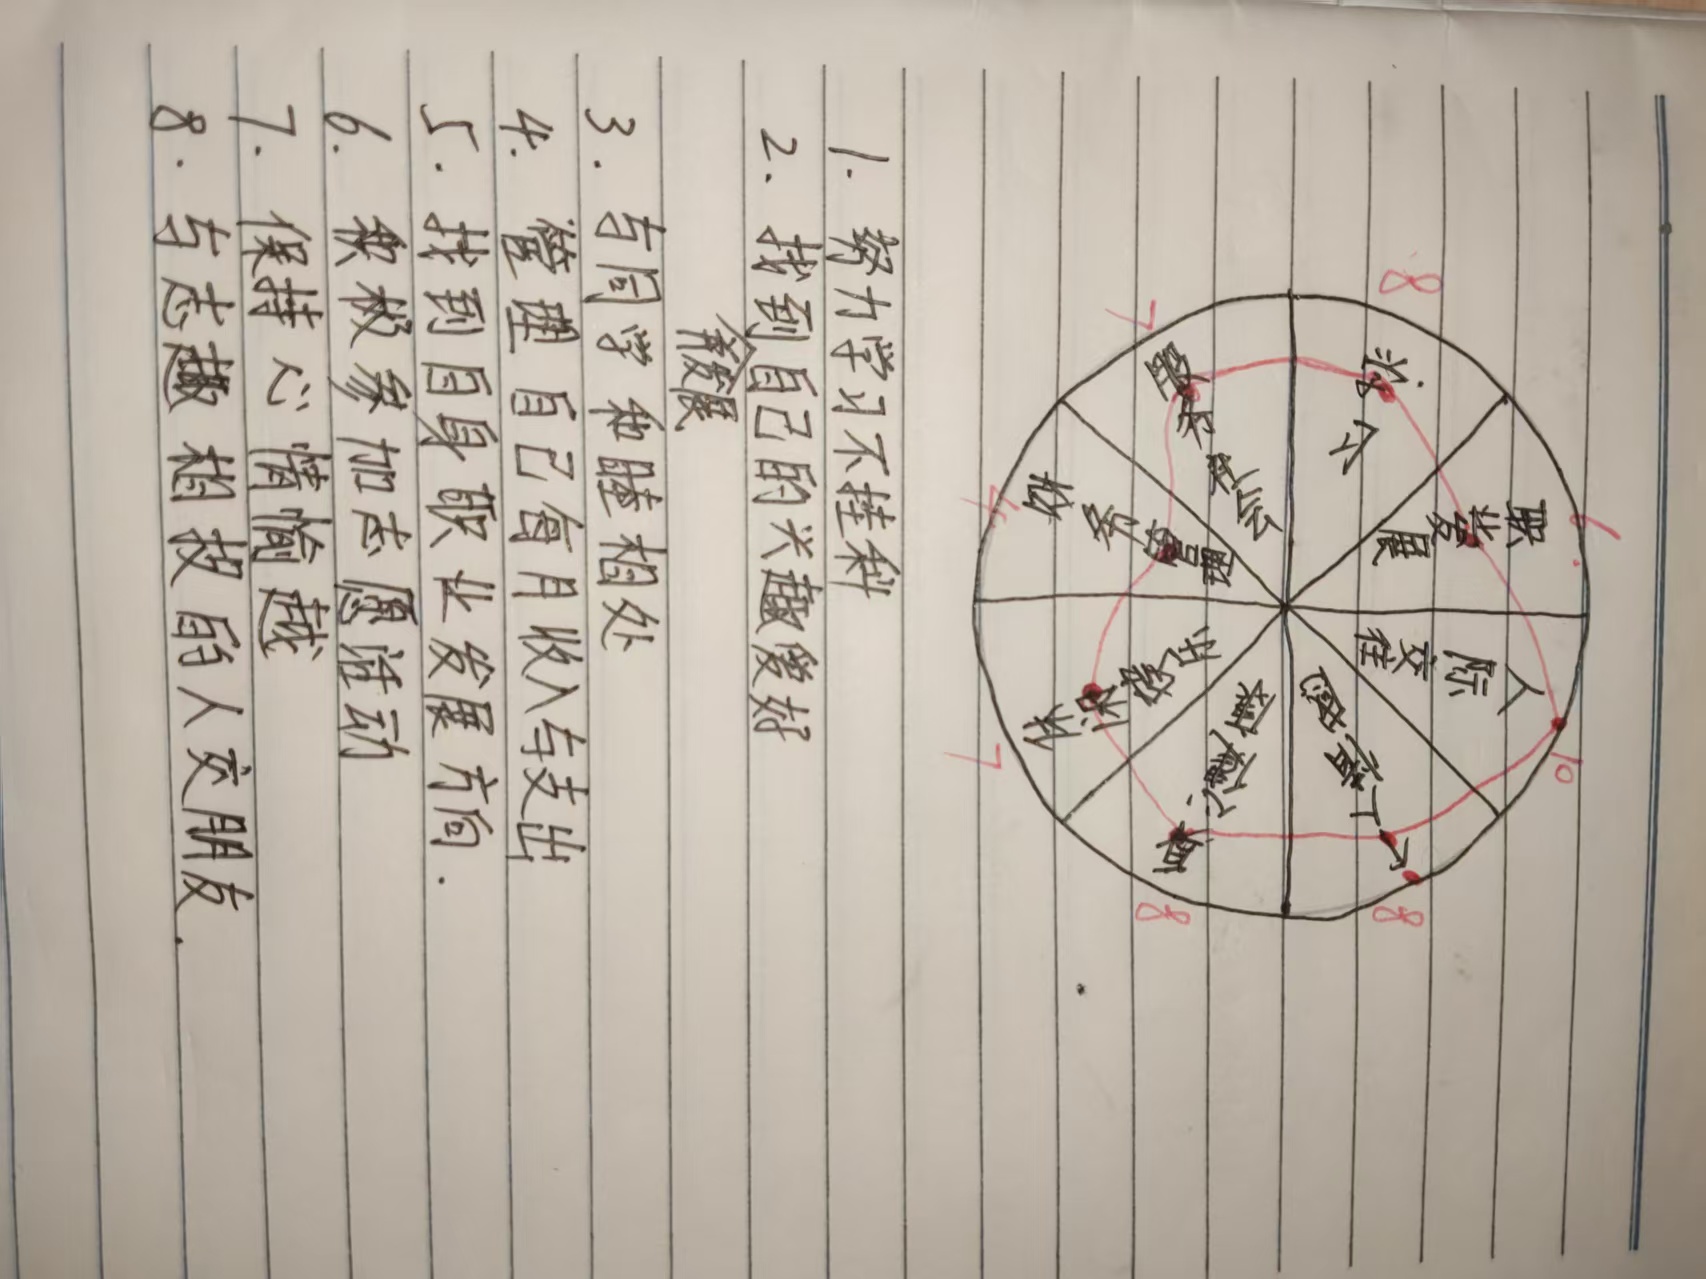 6.
10
职业发展
人际交往
8
8
财务管理
休闲娱乐
健康
7
8
4
7
1. 努力学习不挂科
2. 找到自己的兴趣爱好
并发展
3. 与同学和睦相处
4. 管理自己每月收入与支出
5. 找到自身职业发展方向.
6. 积极参加志愿活动
7. 保持心情愉越
8. 与志趣相投的人交朋友.